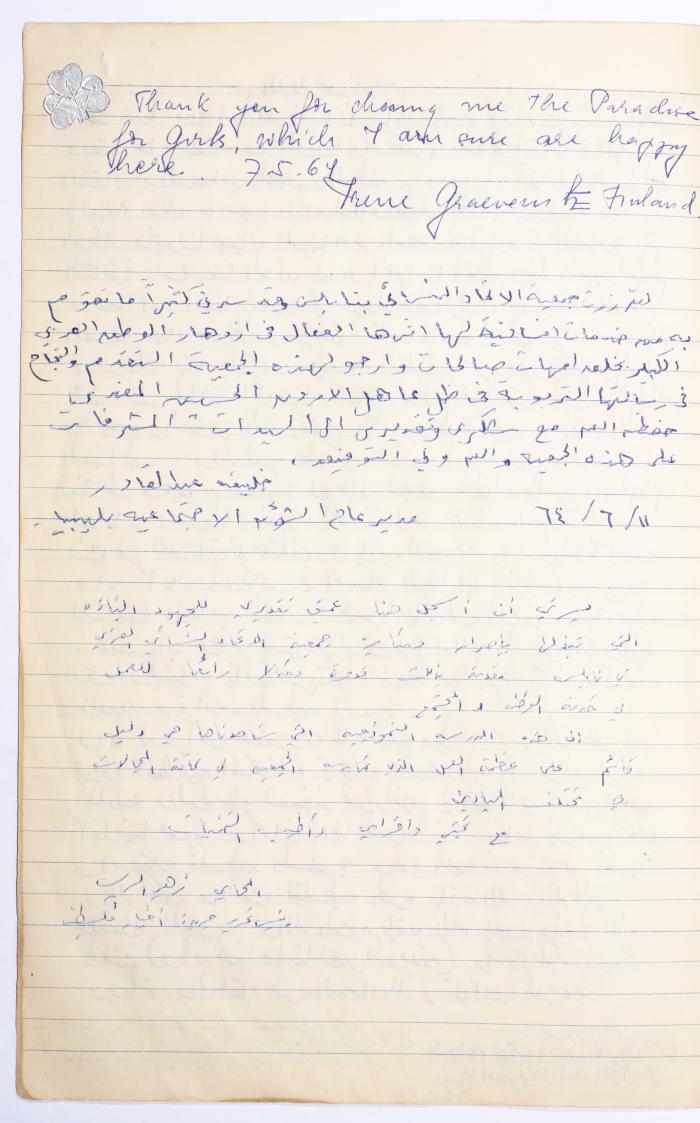 Thank you for choing me the Paradise
for Girls, which I am sure are happy
there. 7.5.64
Irene Graevenitz Finland.
لقد زرت جمعية الاتحاد النسائي بنابلس وقد سرني كثيراً ما تقوم
به من خدمات انسانية لها اثرها الفعال في ازدهار الوطن العربي
الكبير بخلق امهات صالحات وارجو لهذه الجمعية التقدم والنجاح
في رسالتها التربوية في ظل عاهل الاردن الحسين المفدى
حفظه الله مع شكري وتقديري الى السيدات المشرفات
على هذه الجمعية والله ولي التوفيق.
خليفة عبد القادر
١١/ ٦/ ٦٤ مدير عام الشؤون الاجتماعية بليبيا.
يسرني أن أسجل هنا عميق تقديري للجهود البناءه
التي تبذلها بإصرار ومثابرة جمعية الاتحاد النسائي العربي
في نابلس مقدمة بذلك قدوة ومثالا رائعا للعمل
في خدمة الوطن والمجتمع
ان هذه المدرسه النموذجيه التي شاهدناها هي دليل
قائم على عظمة العمل الذي تمارسه الجمعيه في كافة المجالات
وفي مختلف الميادين
مع تحيتي واحترامي وأطيب التمنيات
المحامي زهير الريس
رئيس تحرير جريدة أخبار فلسطين